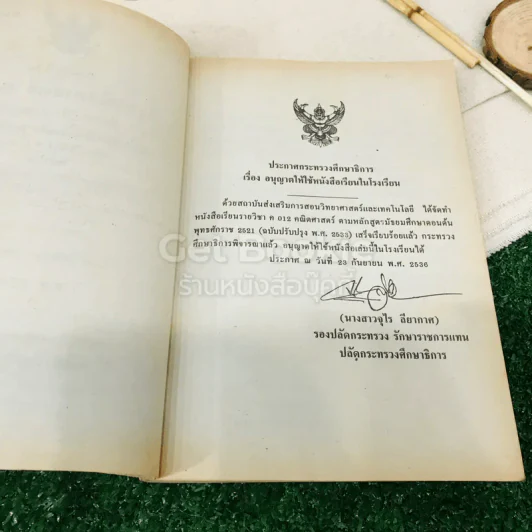 ประกาศกระทรวงศึกษาธิการ
เรื่อง อนุญาตให้ใช้หนังสือเรียนในโรงเรียน
ด้วยสถาบันส่งเสริมการสอนวิทยาศาสตร์และเทคโนโลยี ได้จัดทำ
หนังสือเรียนรายวิชา ค 012 คณิตศาสตร์ ตามหลักสูตรมัธยมศึกษาตอนต้น
พุทธศักราช 2521 (ฉบับปรับปรุง พ.ศ. 2533) เสร็จเรียบร้อยแล้ว กระทรวง
ศึกษาธิการพิจารณาแล้ว อนุญาตให้ใช้หนังสือเล่มนี้ในโรงเรียนได้
ประกาศ ณ วันที่ 23 กันยายน พ.ศ. 2536
ร้านหนังสือบุ๊คกี้
(นางสาวจุไร ลียากาศ)
รองปลัดกระทรวง รักษาราชการแทน
ปลัดกระทรวงศึกษาธิการ